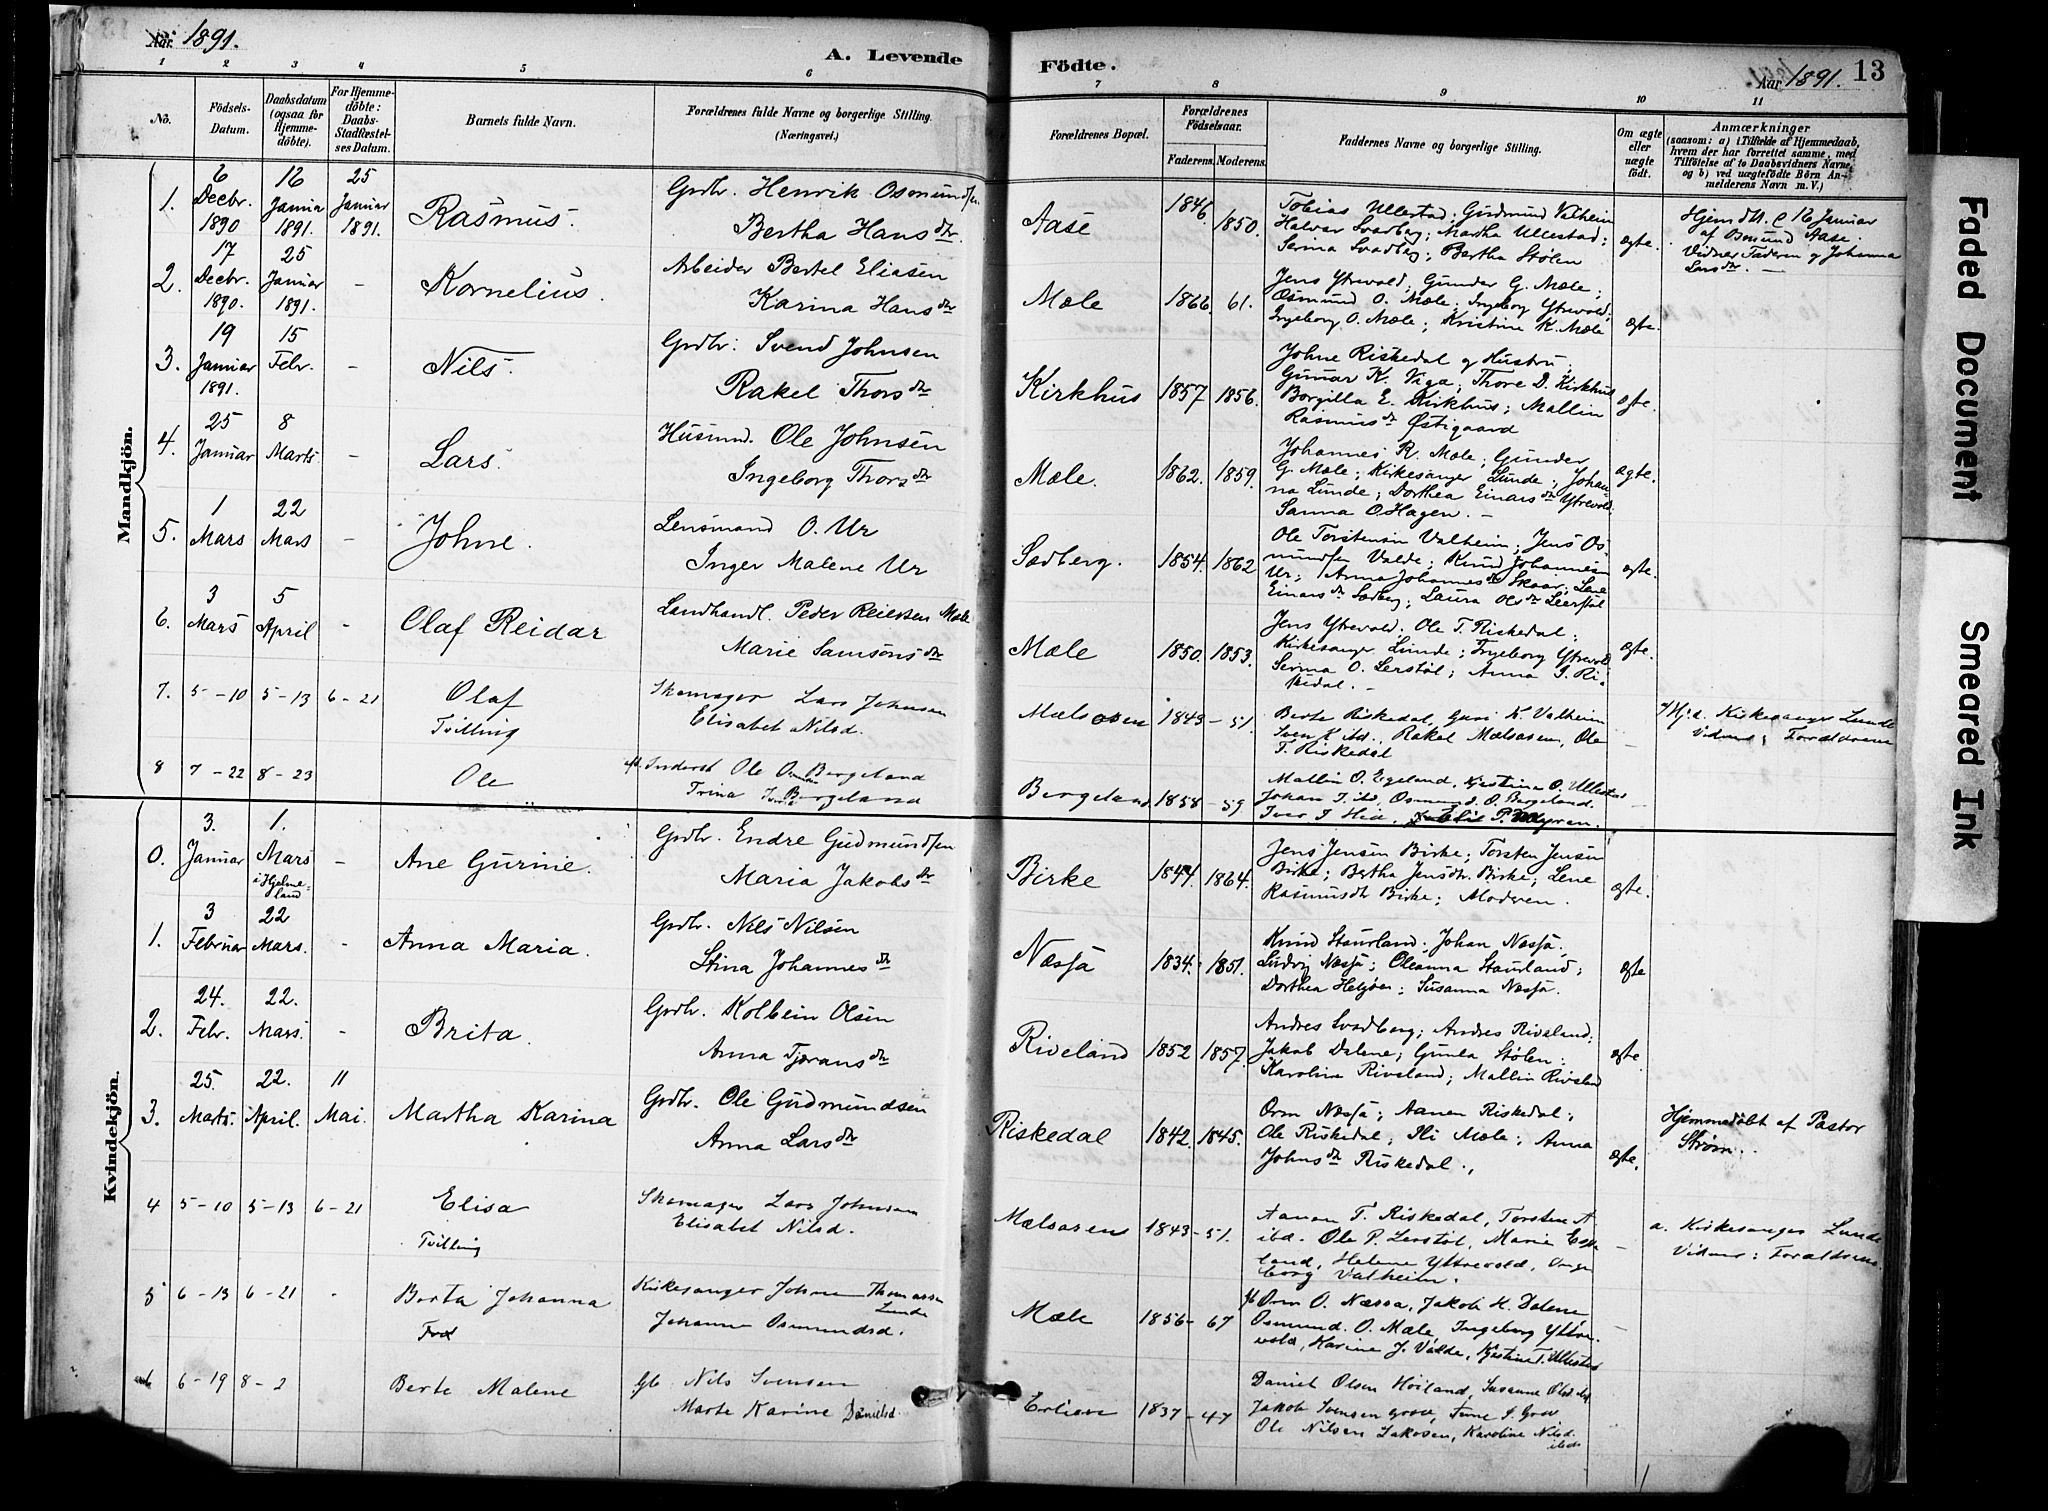 Aar 1891.
A. Levende
Födte.
Aar 1891.
13
1 2 3 4 5 6 7 8 9 10 11
No.
Födsels-
Datum.
Daabsdatum
(ogsaa for
Hjemme-
döbte).
For Hjemme-
döbte:
Daabs-
Stadfæstel-
ses Datum.
Barnets fulde Navn.
Forældrenes fulde Navne og borgerlige Stilling.
(Næringsvei.)
Forældrenes Bopæl.
Forældrenes
Födselsaar.
Faderens. Moderens.
Faddernes Navne og borgerlige Stilling.
Om ægte
eller
uægte
födt.
Anmærkninger
(saasom: a) i Tilfælde af Hjemmedaab,
hvem der har forrettet samme, med
Tilföielse af to Daabsvidners Navne,
og b) ved uægtefödte Börn An-
melderens Navn m. V.)
Mandkjön.
1.
6
Decbr.
1890
16
Januar
1891.
25
Januar
1891.
Rasmus.
Grdbr. Henrik Osmundsen
Bertha Hansdtr.
Aase
1846
1850.
Tobias Ullestad; Gudmund Valheim
Halvar Svadberg; Martha Ullestad;
Serina Svadberg; Bertha Stølen
ægte.
Hjemdbt. 16 Januar
af Aase.
Vidner Faderen og Johanna
Larsdtr. —
2.
17
Decbr.
1890.
25
Januar
1891.
-
Kornelius.
Arbeider Bertel Eliasen
Karina Hansdtr
Mæle
1866.
61.
Jens Ytrevold; Gunder G. Mæle;
Osmund O. Mæle; Ingeborg Ytrevold;
Ingeborg O. Mæle; Kristine K. Mæle
ægte.
3.
19
Januar
1891.
15
Febr.
-
Nils.
Grdbr. Svend Johnsen
Rakel Thorsdtr
Kirkhus
1857
1856.
Johne Riskedal og Hustru;
Gunar K. Viga; Thore D. Kirkhus
Borgilla E. Kirkhus; Mallin
Rasmusdtr Østigaard
ægte.
4.
25
Januar
8
Marts
-
Lars.
Husmd. Ole Johnsen
Ingeborg Thorsdtr
Mæle.
1862.
1859.
Johannes R. Mæle; Gunder
G. Mæle; Kirkesanger Lunde; Johan-
na Lunde; Dorthea Einarsdtr Ytrevold
Sanna O. Hagen. —
ægte.
5.
1
Mars
22
Mars
-
Johne.
Lensmand O. Ur
Inger Malene Ur
Sædberg.
1854.
1862
Ole Torstensen Valheim; Jens Os-
mundsen Valde; Knud Johannesen
Ur; Anna Johannesdtr Skaar; Lene
Einarsdtr Sædberg; Laura Olsdtr Leerstøl
ægte.
6.
3
Mars
5
April
-
Olaf Reidar
Landhandl. Peder Reiersen Mæle
Marie Samsonsdtr
Mæle
1850.
1853.
Jens Ytrevold; Ole T. Riskedal;
Kirkesanger Lunde; Ingeborg Ytrevold
Serina O. Lerstøl; Anna S. Ri-
skedal. —
ægte.
7.
5-10
5-13
6-21
Olaf
Tvilling
Skomager Lars Johnsen
Elisabet Nilsd.
Mælsosen
1843
- 51.
Berte Riskedal, Guri K. Valheim
Sven K. ibd. Rakel Mælsosen, Ole
T. Riskedal
—
Hj.d. Kirkesanger Lunde
Vidner: Forældrene
8
7-22
8-23
Ole
Inderst Ole Bergeland
Trina Bergeland
Bergeland
1858
- 59
Mallin O. Egeland, Kjestina O. Ullestad
Johan T. ibd, Osmund O. Bergeland.
Iver T. Hia,
Kvindekjön.
0.
3.
Januar
1.
Mars
i Hjelme-
land
-
Ane Gurine.
Grdbr. Endre Gudmundsen
Maria Jakobsdtr
Birke
1844.
1864.
Jens Jensen Birke; Torsten Jensen
Birke; Bertha Jensdtr. Birke; Lene
Rasmusdtr Birke; Moderen.
ægte.
1.
3
Februar
22
Mars.
-
Anna Maria.
Grdbr. Nils Nilsen
Stina Johannesdtr
Næssa
1834.
1851.
Knud Staurland; Johan Næssa;
Ludvig Næssa; Oleanna Staurland;
Dorthea Helgøen; Susanna Næssa.
ægte
2.
24.
Febr.
22.
Mars.
-
Brita.
Grdbr. Kolbein Olsen
Anna Tjøransdtr
Riveland
1852
1857.
Andres Svadberg; Andres Riveland;
Jakob Dalene; Gunla Stølen;
Karoline Riveland; Mallin Riveland
ægte.
3.
25.
Marts.
22.
April.
11
Mai.
Martha Karina
Grdbr. Ole Gudmundsen
Anna Larsdtr
Riskedal
1842.
1845.
Orm Næssa; Aanen Riskedal;
Ole Riskedal; Eli Mæle; Anna
Johnsdtr Riskedal.
ægte.
Hjemmedøbt af Pastor
Strøm.
4
5-10
5-13
6-21
Elisa
Tvilling
Skomager Lars Johnsen
Elisabet Nilsd.
Mælsosens
1843
- 51.
Aanen T. Riskedal, Torsten A
ibd. Ole P. Lerstøl, Marie Eske-
land, Helene Yttrevold, Inge-
borg Valheim.
—
a. Kirkesanger Lunde
Vidner: Forældrene.
5
6-13
6-21
-
Berta Johanna
Kirkesanger Johne Thomassen
Lunde
Johanne Osmundsd.
Mæle
1856
- 67
Orm O. Næssa, Jakob H. Dalene
Osmund. O. Mæle, Ingeborg Yttre-
vold, Karine J. Valde, Kjestine T. Ullestad
—
6
6-19
8-2
Berte Malene
Gb. Nils Svensen
Marte Karine Danielsd.
1837
- 47
Daniel Olsen Høiland, Susanne Olsd. ibd
Jakob Svensen Grov, Tune S. Grov
Ole Nilsen Jakosen, Karoline Nilsd.
ibd
Faded Document
Smeared Ink